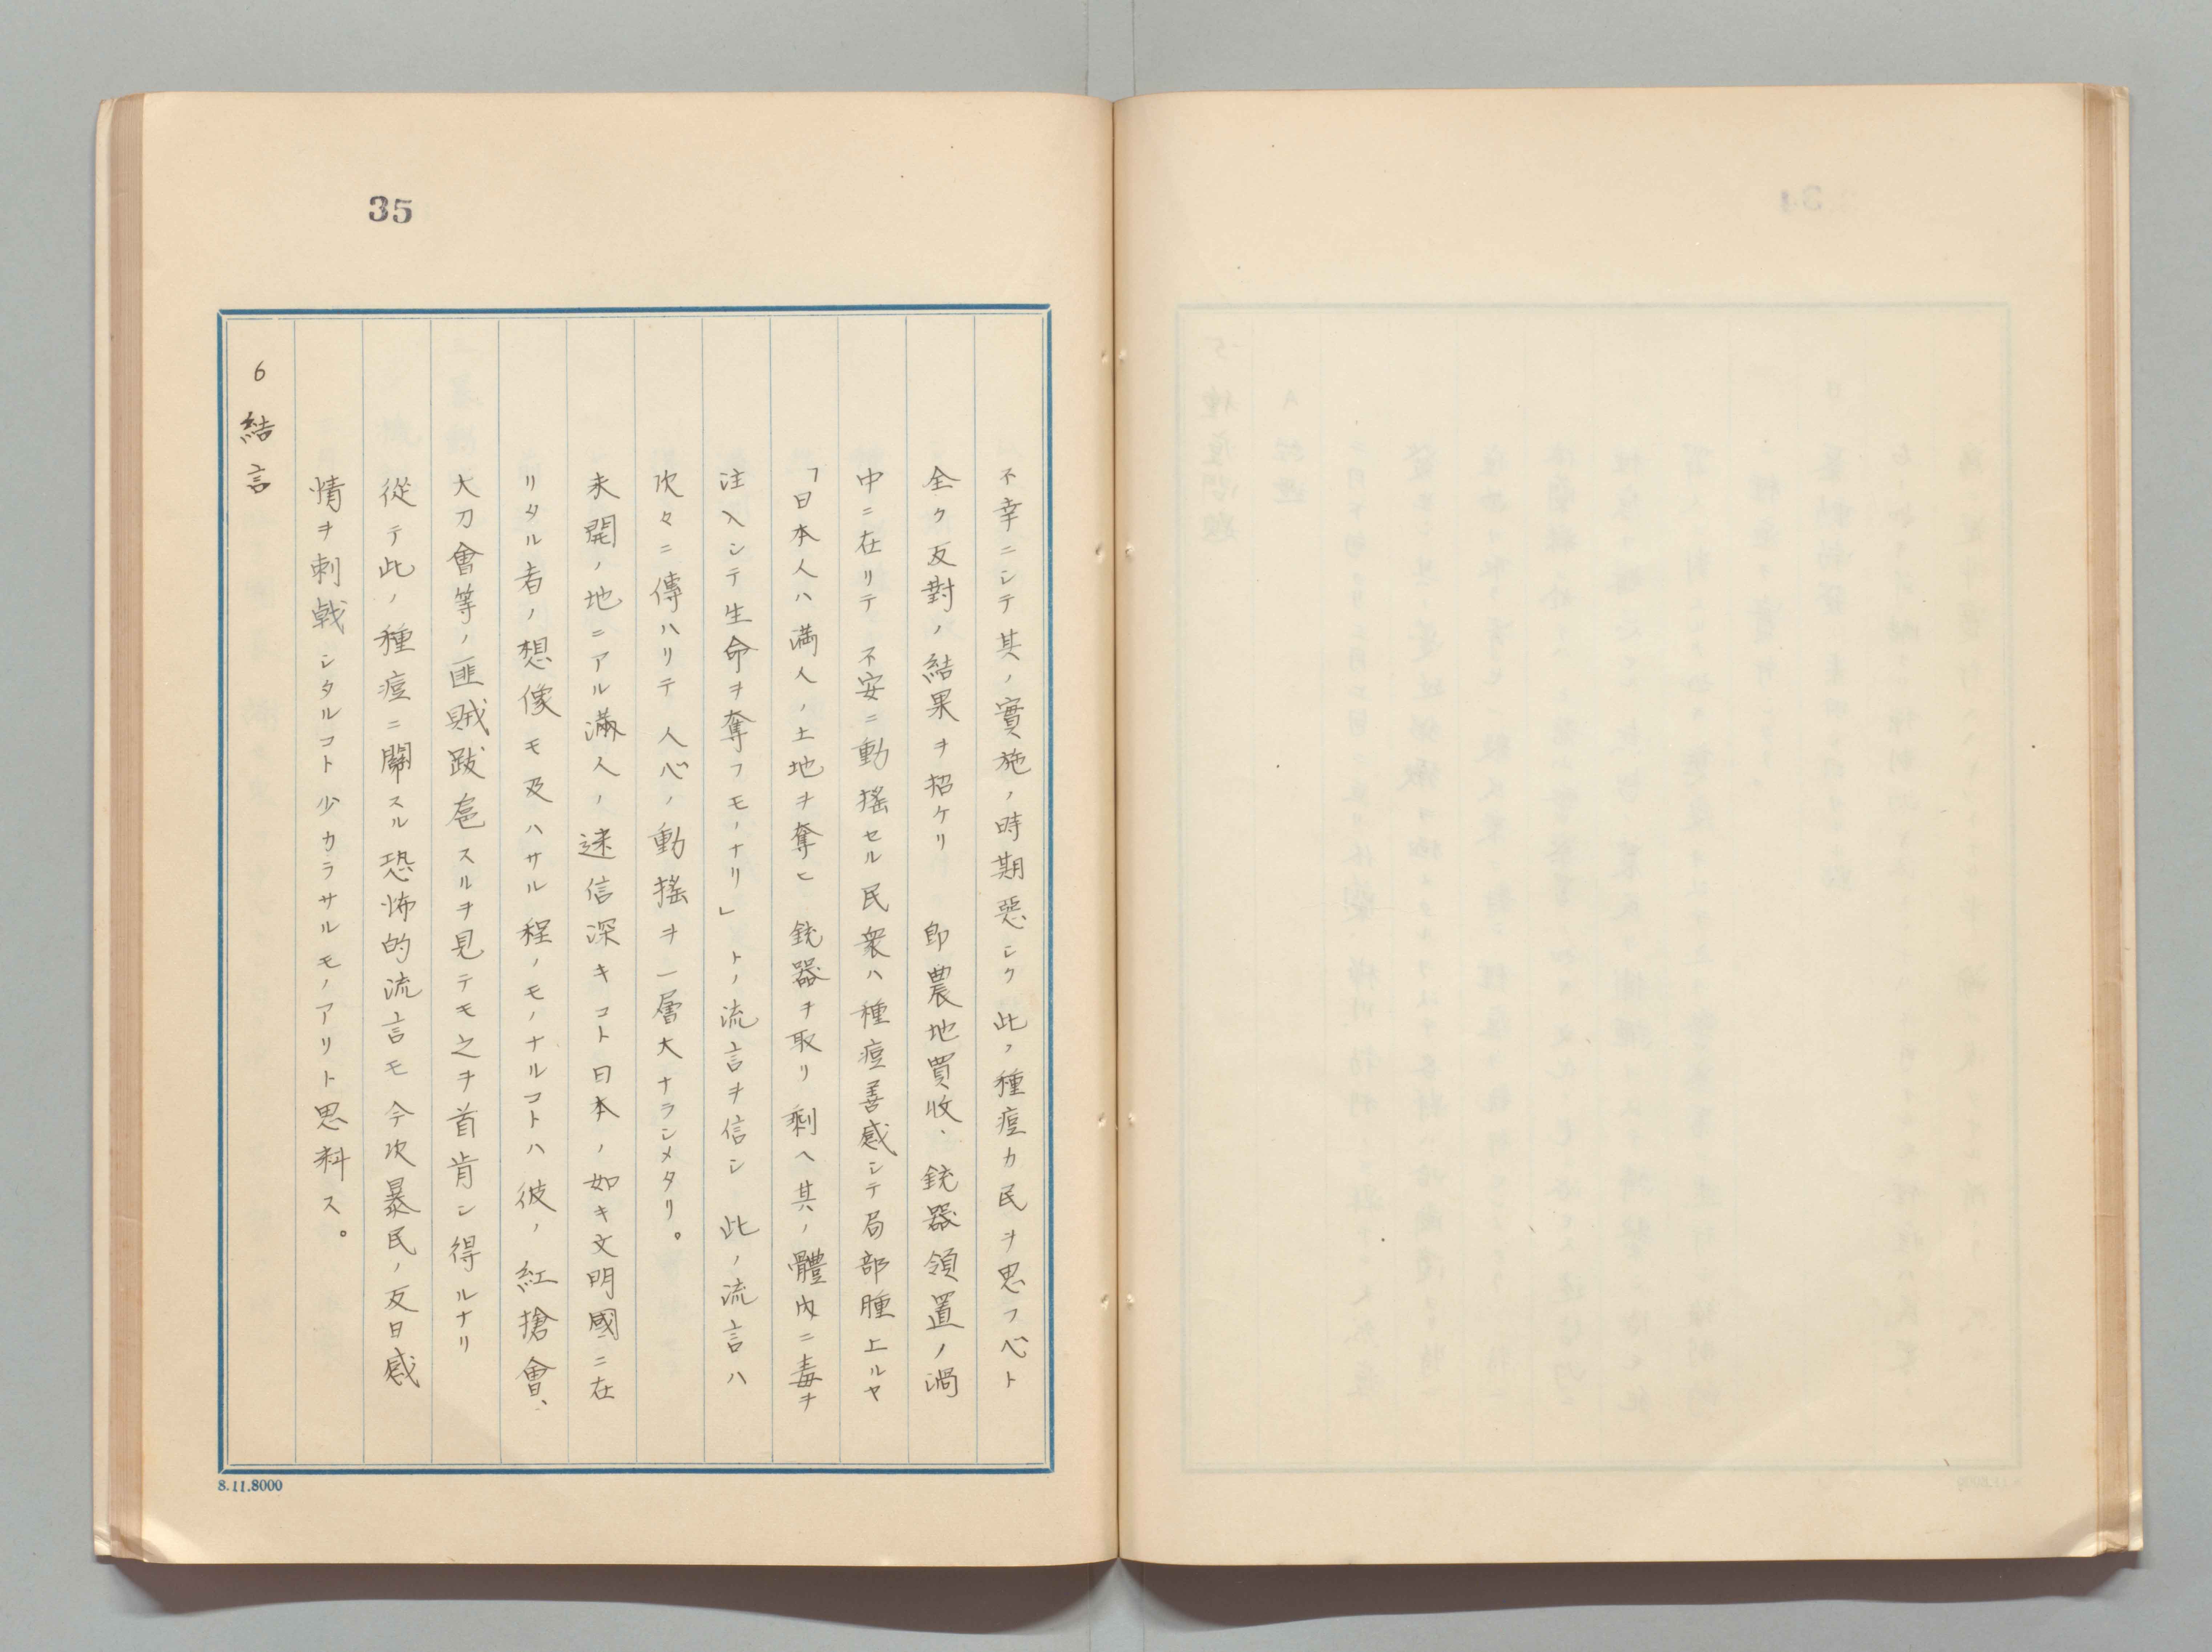 35
不幸ニシテ其ノ實施ノ時期惡シク此ノ種痘カ民ヲ思フベト
全ク反對ノ結果ヲ招ケリ 即農地買收、銃器領置ノ渦
中ニ在リテ不安ニ動搖セル民衆ハ種痘善感シテ局部腫上ルヤ
「日本人ハ満人ノ土地ヲ奪ヒ銃器ヲ取リ剰ヘ其ノ體内ニ毒ヲ
注入シテ生命ヲ奪フモノナリ」トノ流言ヲ信シ此ノ流言ハ
次々ニ傳ハリテ人心ノ動搖ヲ一層大ナラシメタリ。
未開ノ地ニアル滿人ノ迷信深キコト日本ノ如キ文明國ニ在
リタル者ノ想像モ及ハサル程ノモノナルコトハ彼ノ紅搶會、
大刀會等ノ匪賊跋扈スルヲ見テモ之ヲ首肯シ得ルナリ
從テ此ノ種痘ニ關スル恐怖的流言モ今次暴民ノ反日感
情ヲ刺戟シタルコト少カラサルモノアリト思料ス。
6 結言
8.11.8000